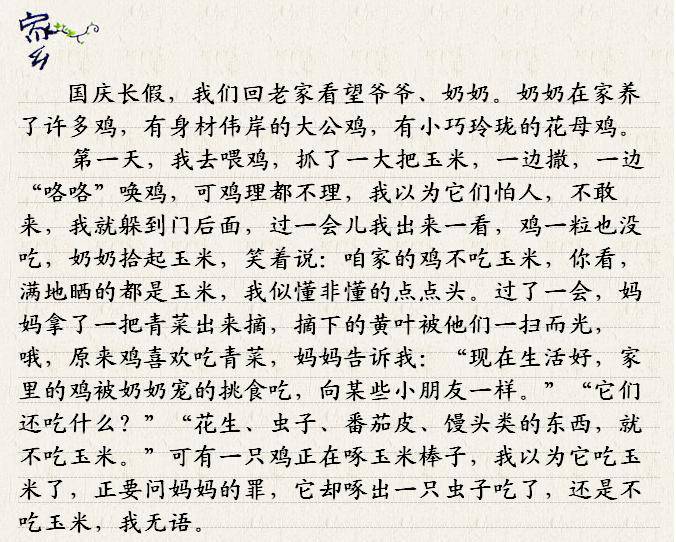 家乡
国庆长假，我们回老家看望爷爷、奶奶。奶奶在家养
了许多鸡，有身材伟岸的大公鸡，有小巧玲珑的花母鸡。
第一天，我去喂鸡，抓了一大把玉米，一边撒，一边
“咯咯”唤鸡，可鸡理都不理，我以为它们怕人，不敢
来，我就躲到门后面，过一会儿我出来一看，鸡一粒也没
吃，奶奶拾起玉米，笑着说：咱家的鸡不吃玉米，你看，
满地晒的都是玉米，我似懂非懂的点点头。过了一会，妈
妈拿了一把青菜出来摘，摘下的黄叶被他们一扫而光，
哦，原来鸡喜欢吃青菜，妈妈告诉我：“现在生活好，家
里的鸡被奶奶宠的挑食吃，向某些小朋友一样。”“它们
还吃什么？”“花生、虫子、番茄皮、馒头类的东西，就
不吃玉米。”可有一只鸡正在啄玉米棒子，我以为它吃玉
米了，正要问妈妈的罪，它却啄出一只虫子吃了，还是不
吃玉米，我无语。